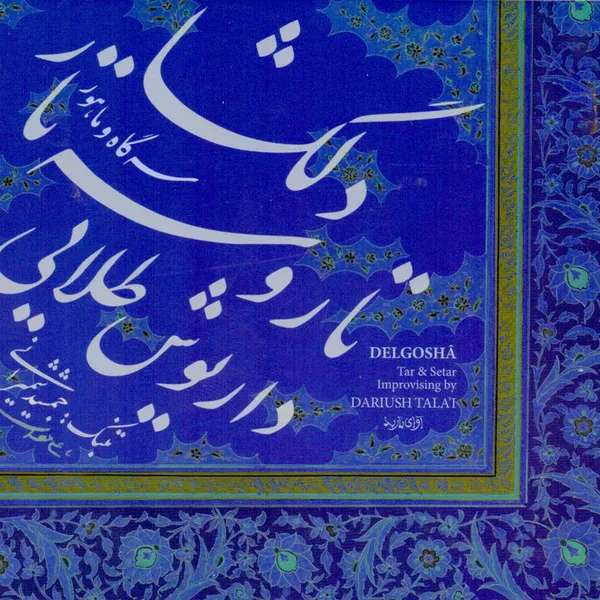 دلگشا
سه گاه و ماهور
تار و سه تار
داریوش طلایی
تنبک: جمشید شمیرانی
DELGOSHÂ
Tar & Setar
Improvising by
DARIUSH TALA'I
آوای باربد